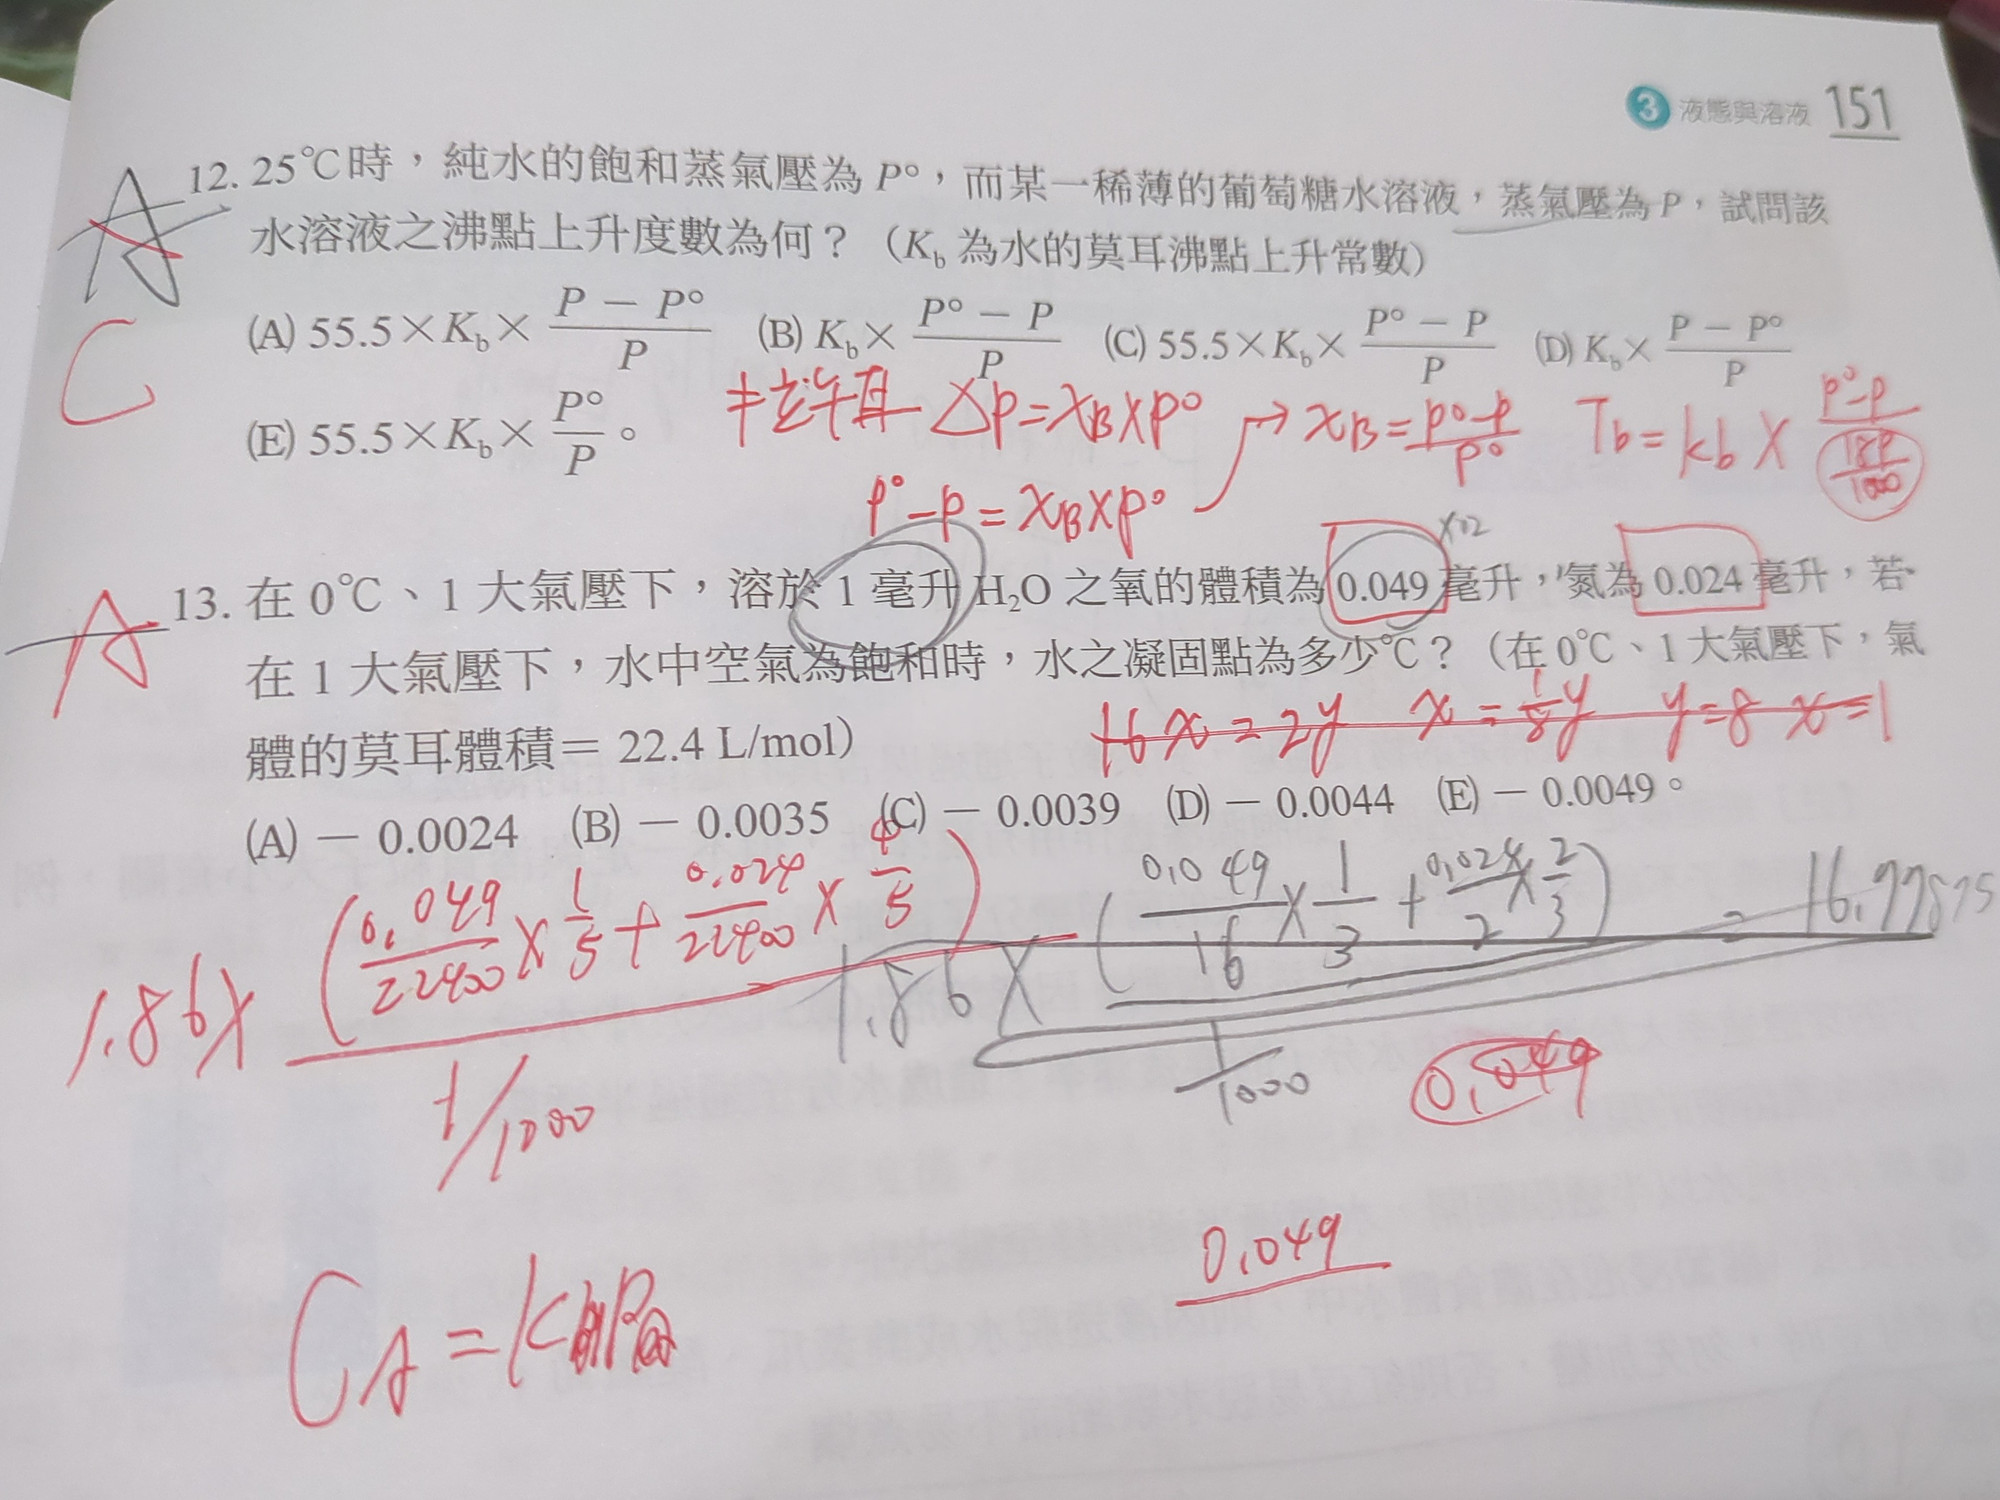 3 液態與溶液 151
A 12. 25℃時，純水的飽和蒸氣壓為 P°，而某一稀薄的葡萄糖水溶液，蒸氣壓為 P，試問該
水溶液之沸點上升度數為何？（Kb 為水的莫耳沸點上升常數）
C
(A) 55.5×Kb× (P − P°)/P (B) Kb× (P° − P)/P (C) 55.5×Kb× (P° − P)/P (D) Kb× (P − P°)/P
(E) 55.5×Kb× P°/P 。
ΔP=XB×P° → XB=(P°-P)/P° Tb=kb× (P°-P)/(18P/1000)
P°-P=XB×P°
A 13. 在 0℃、1 大氣壓下，溶於 1 毫升 H2O 之氧的體積為 0.049 毫升，氮為 0.024 毫升，若
在 1 大氣壓下，水中空氣為飽和時，水之凝固點為多少℃？（在 0℃、1 大氣壓下，氣
體的莫耳體積＝ 22.4 L/mol）
16x=2y x=1/8y y=8 x=1
(A) − 0.0024 (B) − 0.0035 (C) − 0.0039 (D) − 0.0044 (E) − 0.0049。
1.86× (0.049/22400 × 1/5 + 0.024/22400 × 4/5) / 1/1000
1.86× (0.049/16 × 1/3 + 0.024/2 × 2/3) / 1/1000 = 16.77875
0.049
0.049
CA=k